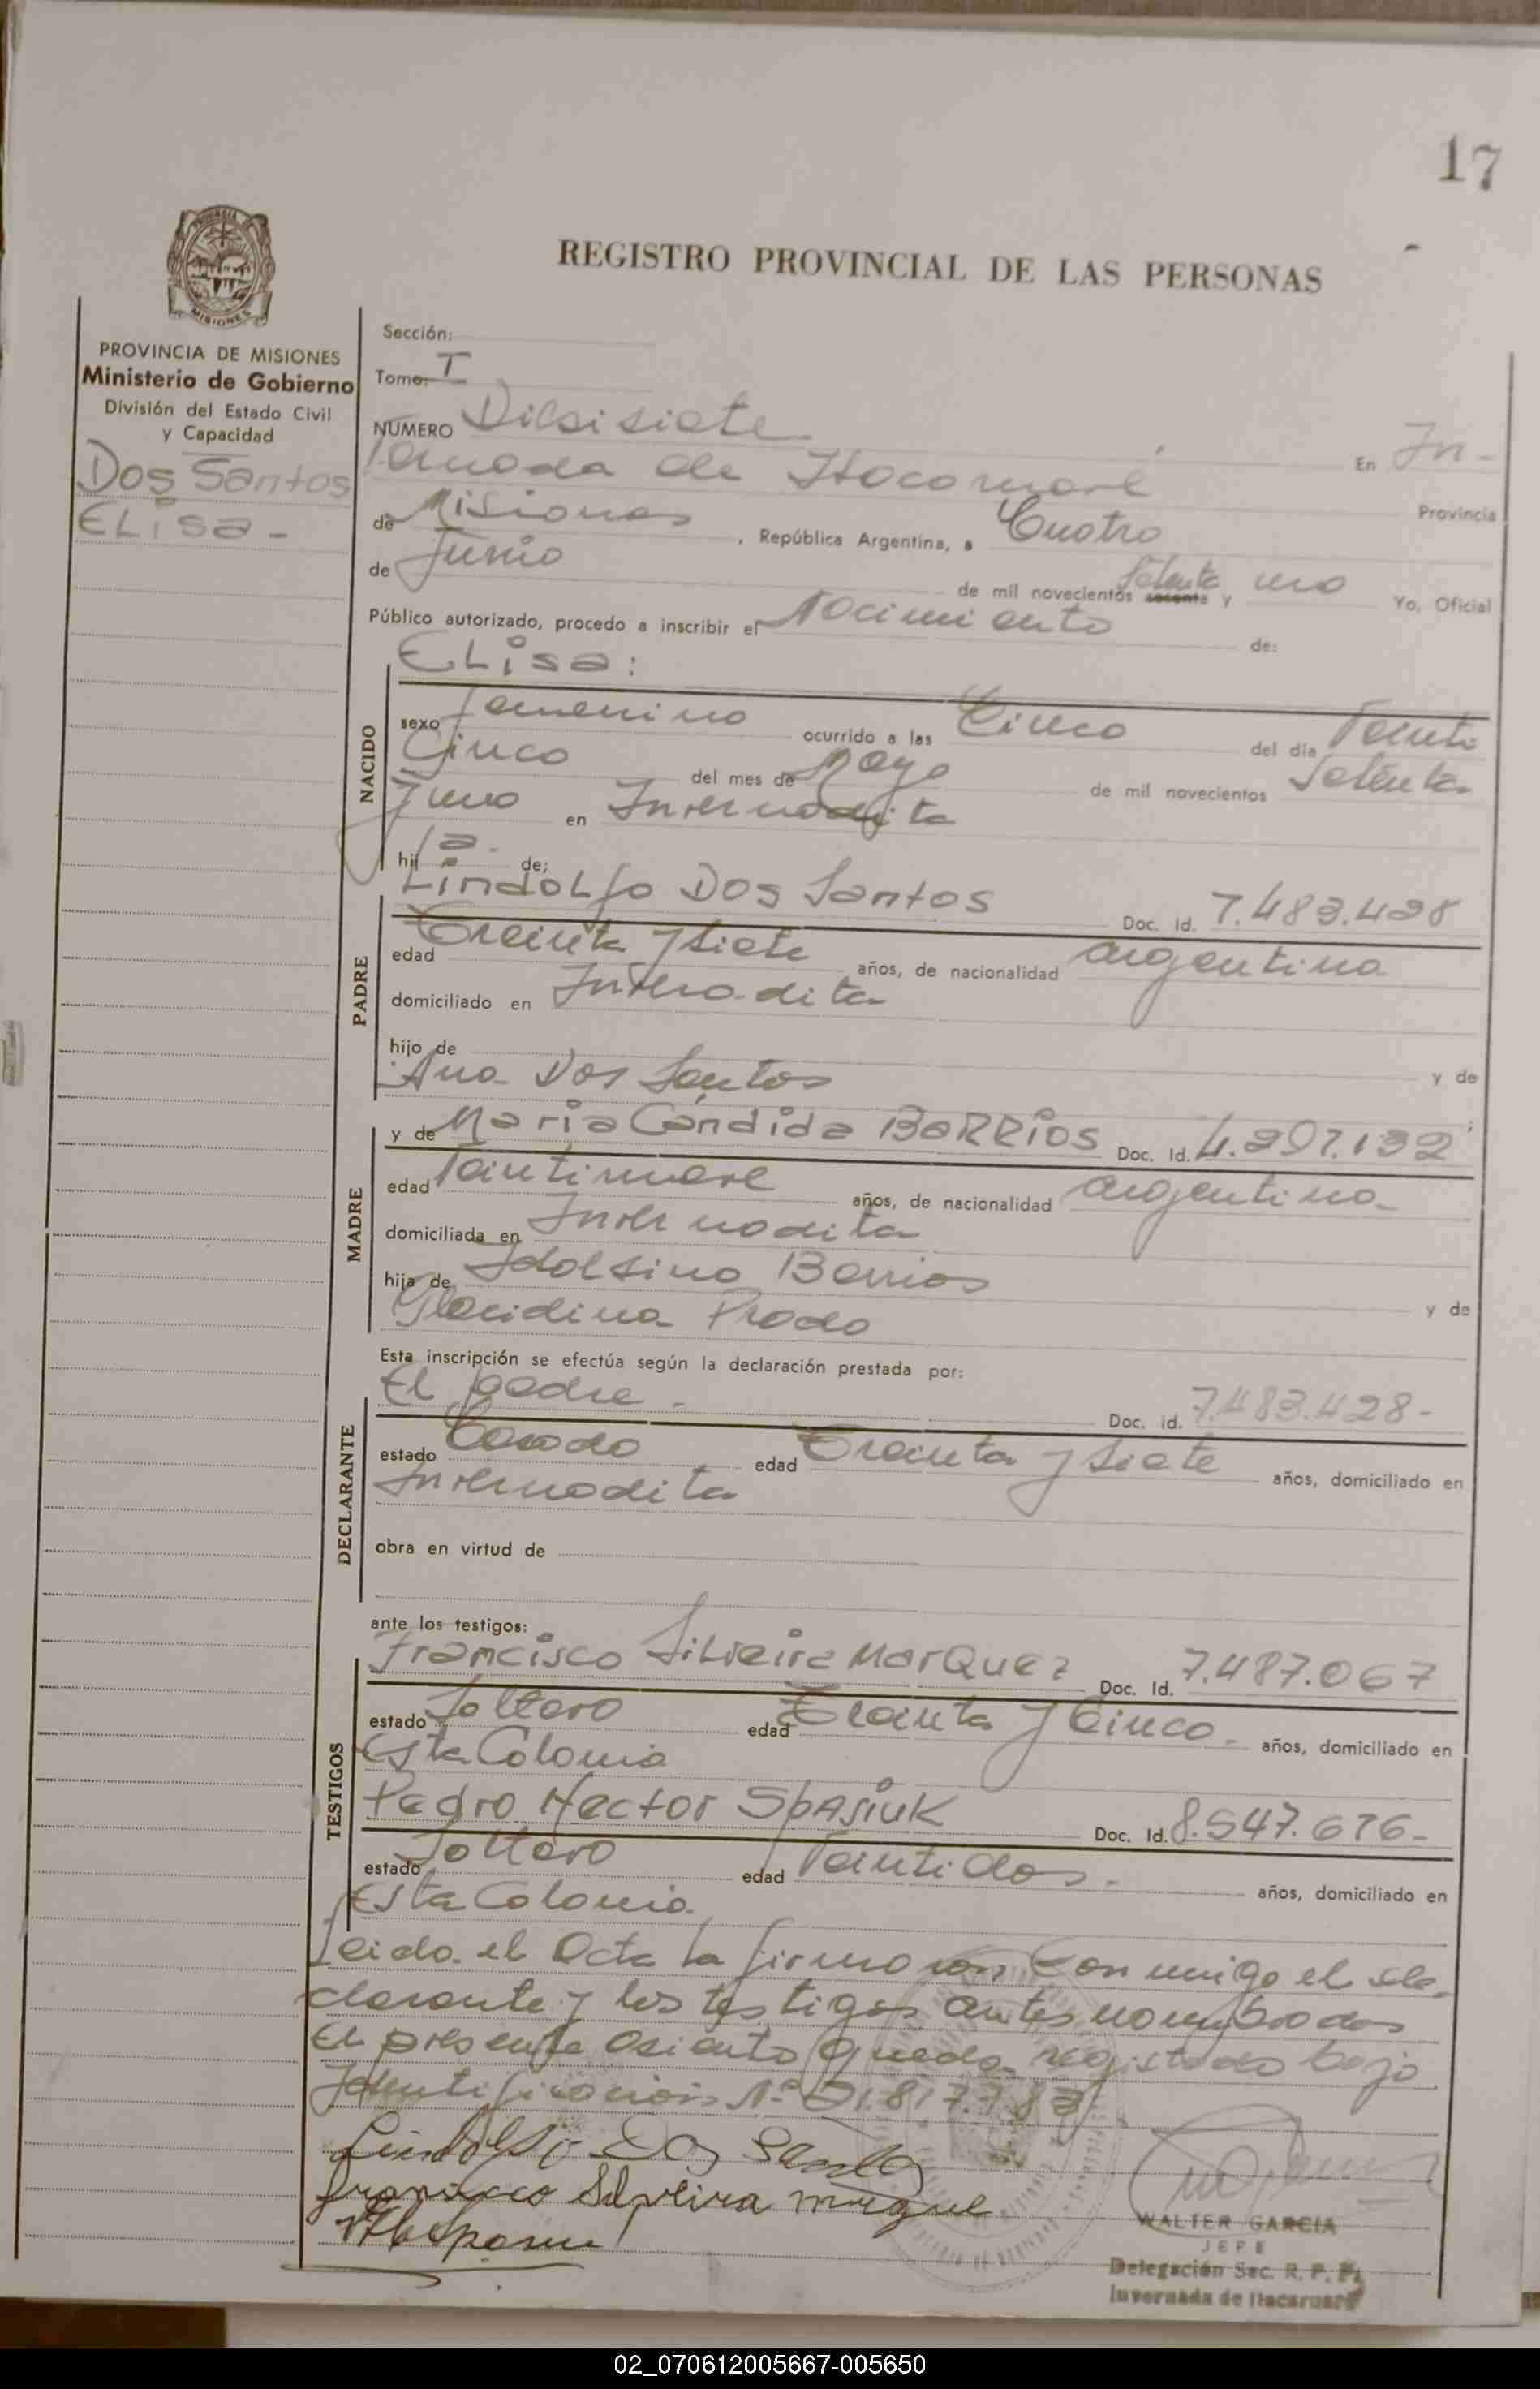 17
REGISTRO PROVINCIAL DE LAS PERSONAS
MISIONES
PROVINCIA DE MISIONES
Ministerio de Gobierno
División del Estado Civil
y Capacidad
Dos Santos
ELisa -
Sección:
Tomo: I
NÚMERO Diesisiete En In-
vernada de Itacaruaré Provincia
de Misiones, República Argentina, a Cuatro
de Junio de mil novecientos sesenta Setenta y uno Yo, Oficial
Público autorizado, procedo a inscribir el Nacimiento de:
ELisa:
NACIDO
sexo femenino ocurrido a las Cinco del día Veinti
Cinco del mes de Mayo de mil novecientos Setenta
y uno en Invernadita
hija de:
LindoLfo Dos Santos Doc. Id. 7.483.428
PADRE
edad Treinta y siete años, de nacionalidad argentina
domiciliado en Invernadita
hijo de
Ana Dos Santos y de
y de Maria Cándida BaRRios Doc. Id. 4.297.132
MADRE
edad Veintinueve años, de nacionalidad argentina
domiciliada en Invernadita
hija de Idolsino Barrios y de
Glaudina Prado
Esta inscripción se efectúa según la declaración prestada por:
El padre - Doc. id. 7.483.428-
DECLARANTE
estado Casado edad Treinta y siete años, domiciliado en
Invernadita
obra en virtud de
ante los testigos:
Francisco Silveira Marquez Doc. Id. 7.487.067
TESTIGOS
estado Soltero edad Treinta y Cinco - años, domiciliado en
Esta Colonia
Pedro Hector SpAsiuk Doc. Id. 8.547.676-
estado Soltero edad Veintidos - años, domiciliado en
Esta Colonia.
Leida el Acta la firmaron conmigo el de-
clarante y los testigos antes nombrados
El presente asiento queda registrado bajo
Identificación Nº 21.817.783
Lindolfo Dos Santos
Francisco Silveira
WALTER GARCIA
JEFE
Delegación Sec. R. P. P.
Invernada de Itacaruaré
02_070612005667-005650